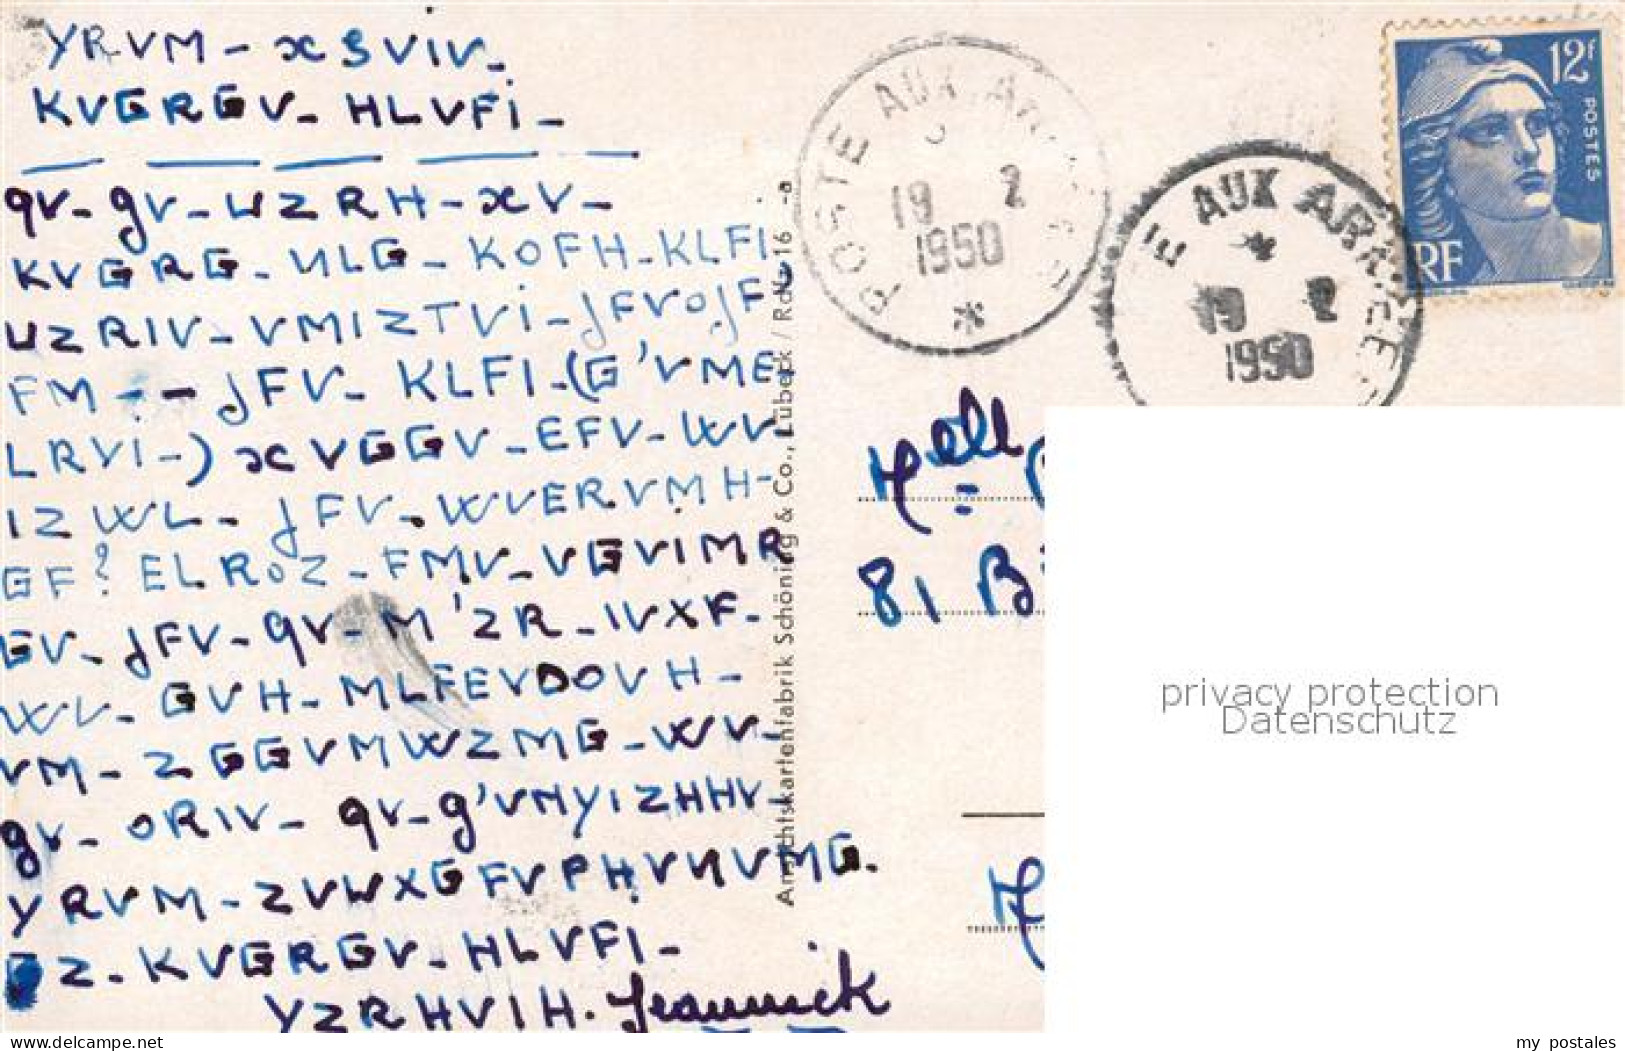 YRVM - XSVIV -
KVGRGV - HLVFI -
qV - gV - UZRH - XV -
KVGRG - NLG - KOFH - KLFI
UZRIV - VMIZTVI - JFVOJF
FM - - JFV - KLFI - (G'VME
LRVI -) XVGGV - EFV - WV
IZWL - JFV - WVERVMH -
GF? ELROZ - FMV - VGVIMR
GV - JFV - qV - M'ZR - IVXF -
WV - GVH - MLFEVOOVH -
VM - ZGGVMWZMG - WV -
gV - ORIV - qV - g'VNYIZHHV
YRVM - ZUUVXGFVFHVNVMG.
GZ - KVGRGV - HLVFI -
YZRHVIH. Jeannick
POSTE AUX ARMEES
19 2
1950
*
E AUX ARMEES
*
19 2
1950
12f
POSTES
RF
Melle
81 B
Ansichtskartenfabrik Schöning & Co., Lübeck / Rdlf 16 -a
privacy protection
Datenschutz
my-email.nc
my postales